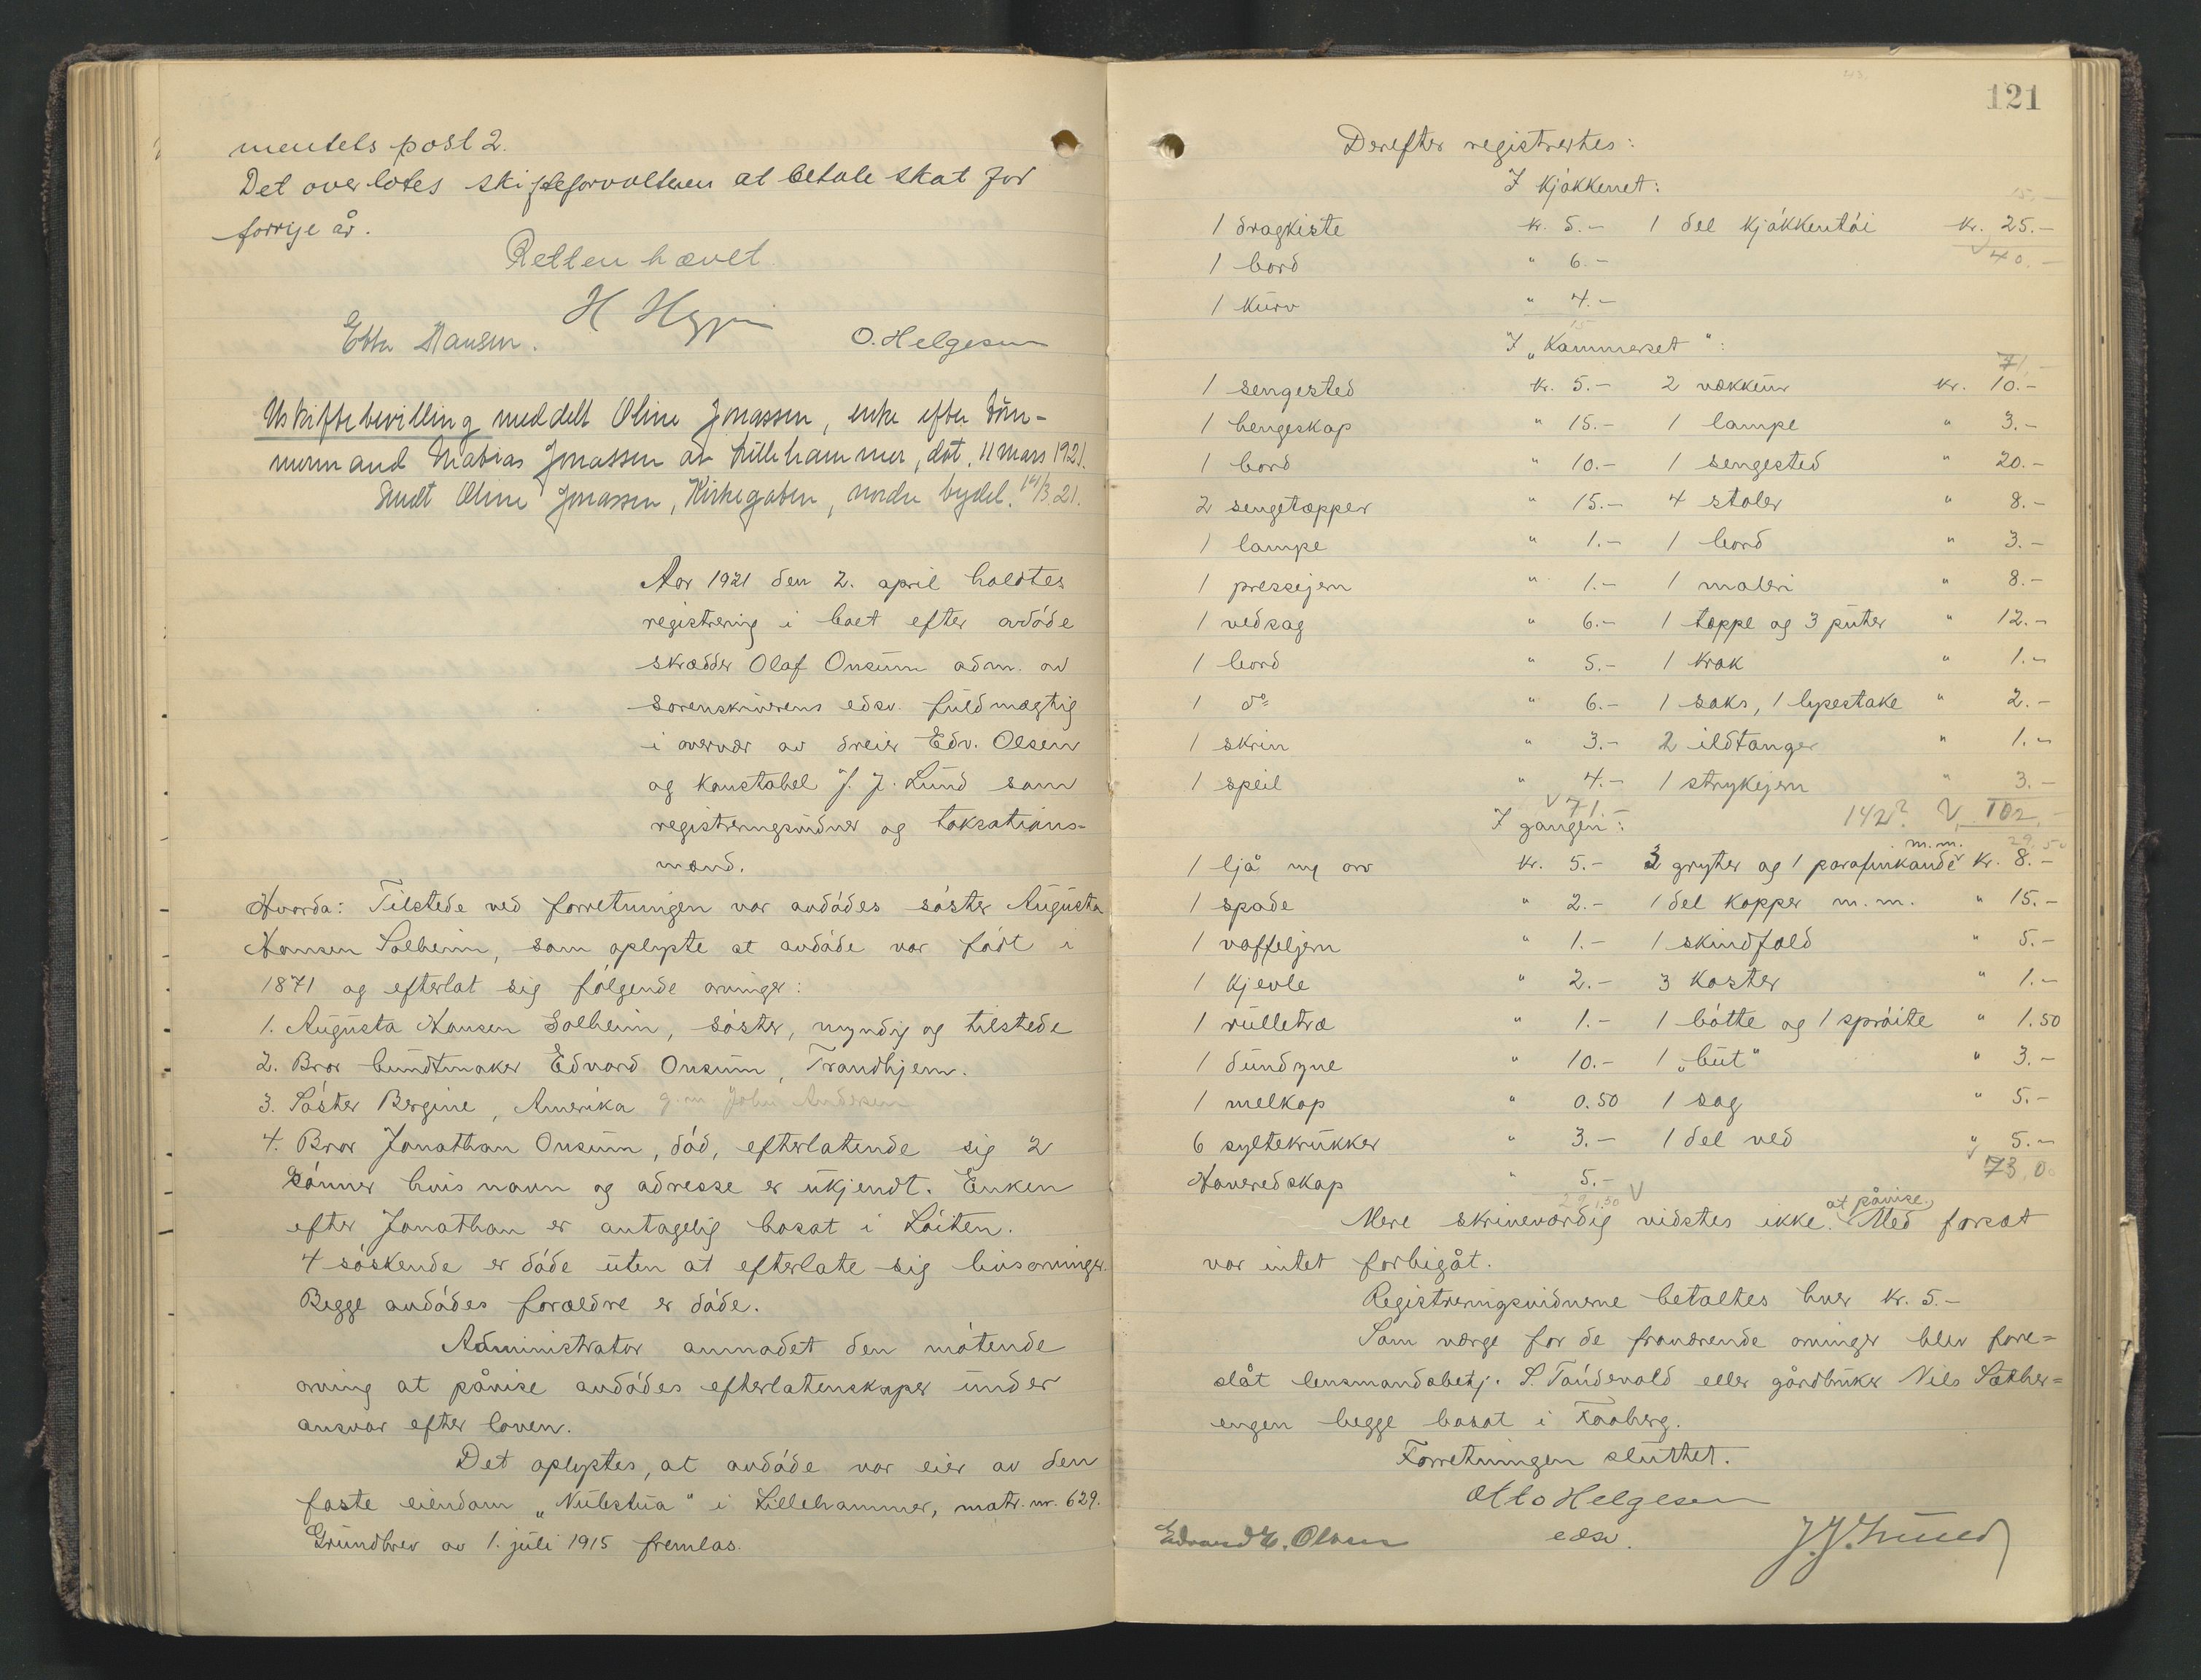 mentets post 2.
Det overlotes skifteforvalteren at betale skat for
forrige år.
Retten hævet
H H
Hansen. O. Helgesen
Uskiftebevilling meddelt Oline Jonassen, enke efter töm-
mermand Mathias Jonassen av Lillehammer, dat. 11 mars 1921.
Sendt Oline Jonassen, Kirkegaten, nordre bydel. 14/3.21.
Aar 1921 den 2. april holdtes
registrering i boet efter avdóde
skrædder Olaf Onsum adm. av
sorenskriverens edsv. fuldmægtig
i overvær av dreier Edv. Olsen
og konstabel J. J. Lund som
registreringsvidner og taksations-
mænd.
Hvorda: Tilstede ved forretningen var avdódes sóster Augusta
Hansen Solheim, som oplyste at avdóde var fódt i
1871 og efterlot sig fólgende arvinger:
1. Augusta Hansen Solheim, sóster, myndig og tilstede
2. Bror bundtmaker Edvard Onsum, Trondhjem.
3. Sóster Bergine, Amerika g.m. John Andersen
4. Bror Jonathan Onsum, dód, efterlatende sig 2
sónner hvis navn og adresse er ukjendt. Enken
efter Jonathan er antagelig bosat i Lóiten.
4 sóskende er dóde uten at efterlate sig livsarvinger.
Begge avdódes forældre er dóde.
Administrator anmodet den mótende
arving at påvise avdódes efterlatenskaper under
ansvar efter loven.
Det oplystes, at avdóde var eier av den
faste eiendom „Nústua" i Lillehammer, matr. nr. 629.
Grundbrev av 1. juli 1915 fremlas.
121
Derefter registrertes:
I kjókkenet:
15.-
1 dragkiste kr. 5.- 1 del kjókkentói kr. 25.-
1 bord " 6.- 40.-
1 kurv " 4.-
15
I „Kammerset":
71.-
1 sengested kr. 5.- 2 vækkeur kr. 10.-
1 hengeskap " 15.- 1 lampe " 3.-
1 bord " 10.- 1 sengested " 20.-
2 sengetæpper " 15.- 4 stoler " 8.-
1 lampe " 1.- 1 bord " 3.-
1 pressejern " 1.- 1 maleri " 8.-
1 vedsag " 6.- 1 tæppe og 3 puter " 12.-
1 bord " 5.- 1 krak " 1.-
1 do " 6.- 1 saks, 1 lysestake " 2.-
1 skrin " 3.- 2 ildtanger " 1.-
1 speil " 4.- 1 strykejern " 3.-
71.- 142? 102.-
I gangen:
m.m. 29,50
1 ljå og orv kr. 5.- 3 gryter og 1 parafinkande kr. 8.-
1 spade " 2.- 1 del kopper m.m. " 15.-
1 vaffeljern " 1.- 1 skindfald " 5.-
1 kjevle " 2.- 3 koster " 1.-
1 rulletræ " 1.- 1 bótte og 1 spróite " 1.50
1 dundyne " 10.- 1 „but" " 3.-
1 melkop " 0.50 1 sag " 5.-
6 syltekrukker " 3.- 1 del ved " 5.-
Haveredskap " 5.- 73,00
29,50
Mere skriveværdig vidstes ikke at påvise. Med forsæt
var intet forbigåt.
Registreringsvidnerne betaltes hver kr. 5.-
Som værge for de fraværende arvinger blev fore=
slåt lensmandsbetj. S. Tóndevold eller gårdbruker Nils Sæther=
engen begge bosat i Faaberg.
Forretningen sluttet.
Otto Helgesen
Edvard E. Olsen edsv. J. J. Lund